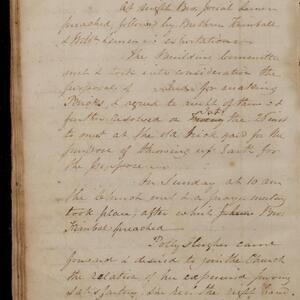 At night Bro. Josiah
preached, followed by Brethren Kimball
& in exhortation
The Building Committee
met & took into consideration the
proposals of for making
Bricks, & agreed to accept of them &
further resolved on the 28 inst
to meet at the old brick yard for the
purpose of throwing up Earth for
the purpose
On Sunday at 10 am
the Church met & a prayer meeting
took place, after which Bro.
Kimball preached
Polly Hughes came
forward & desired to join the Church
the relation of her experience proving
satisfactory she rec'd the right hand